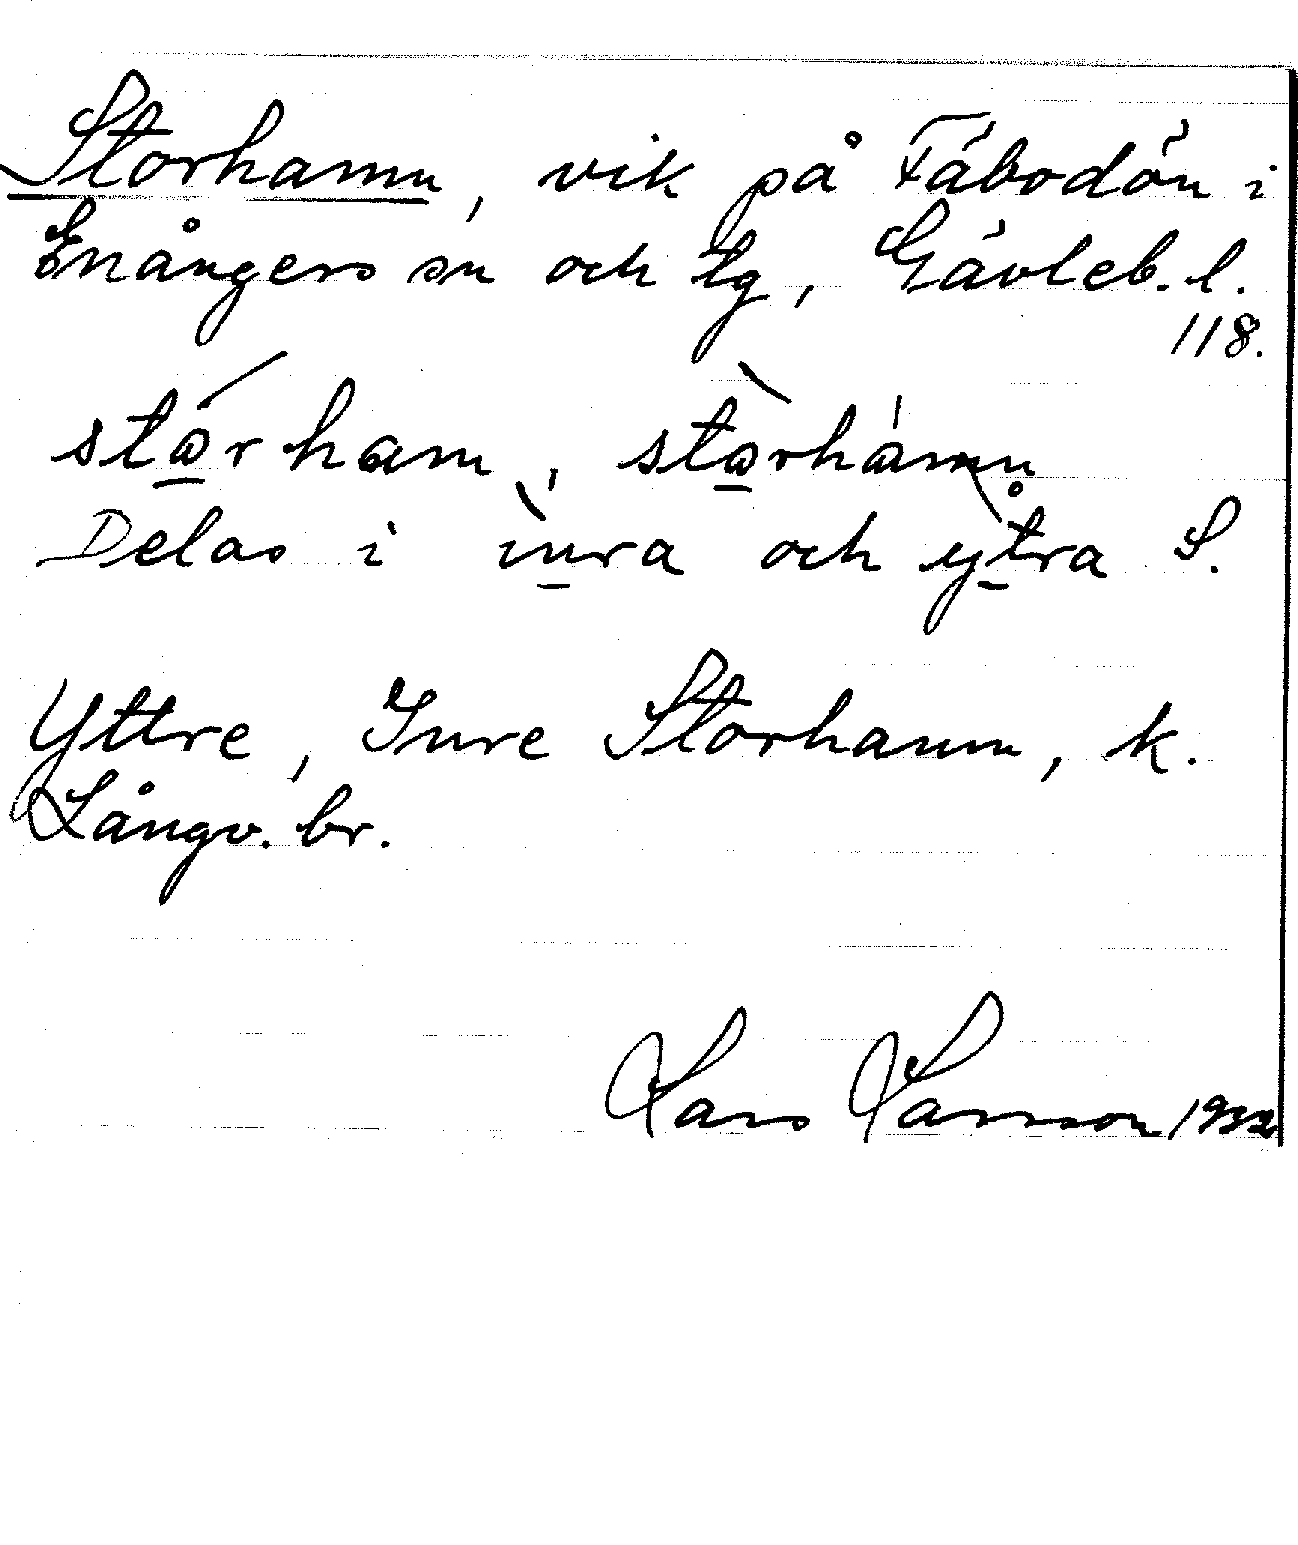 Storhamn, vik på Fäbodön i
Enångers sn och tg, Gävleb. l.
118.
stárham, stàrhámn
Delas i ìnra och ỳtra S.
Yttre, Inre Storhamn, k.
Långv. br.
Lars Larsson 1932